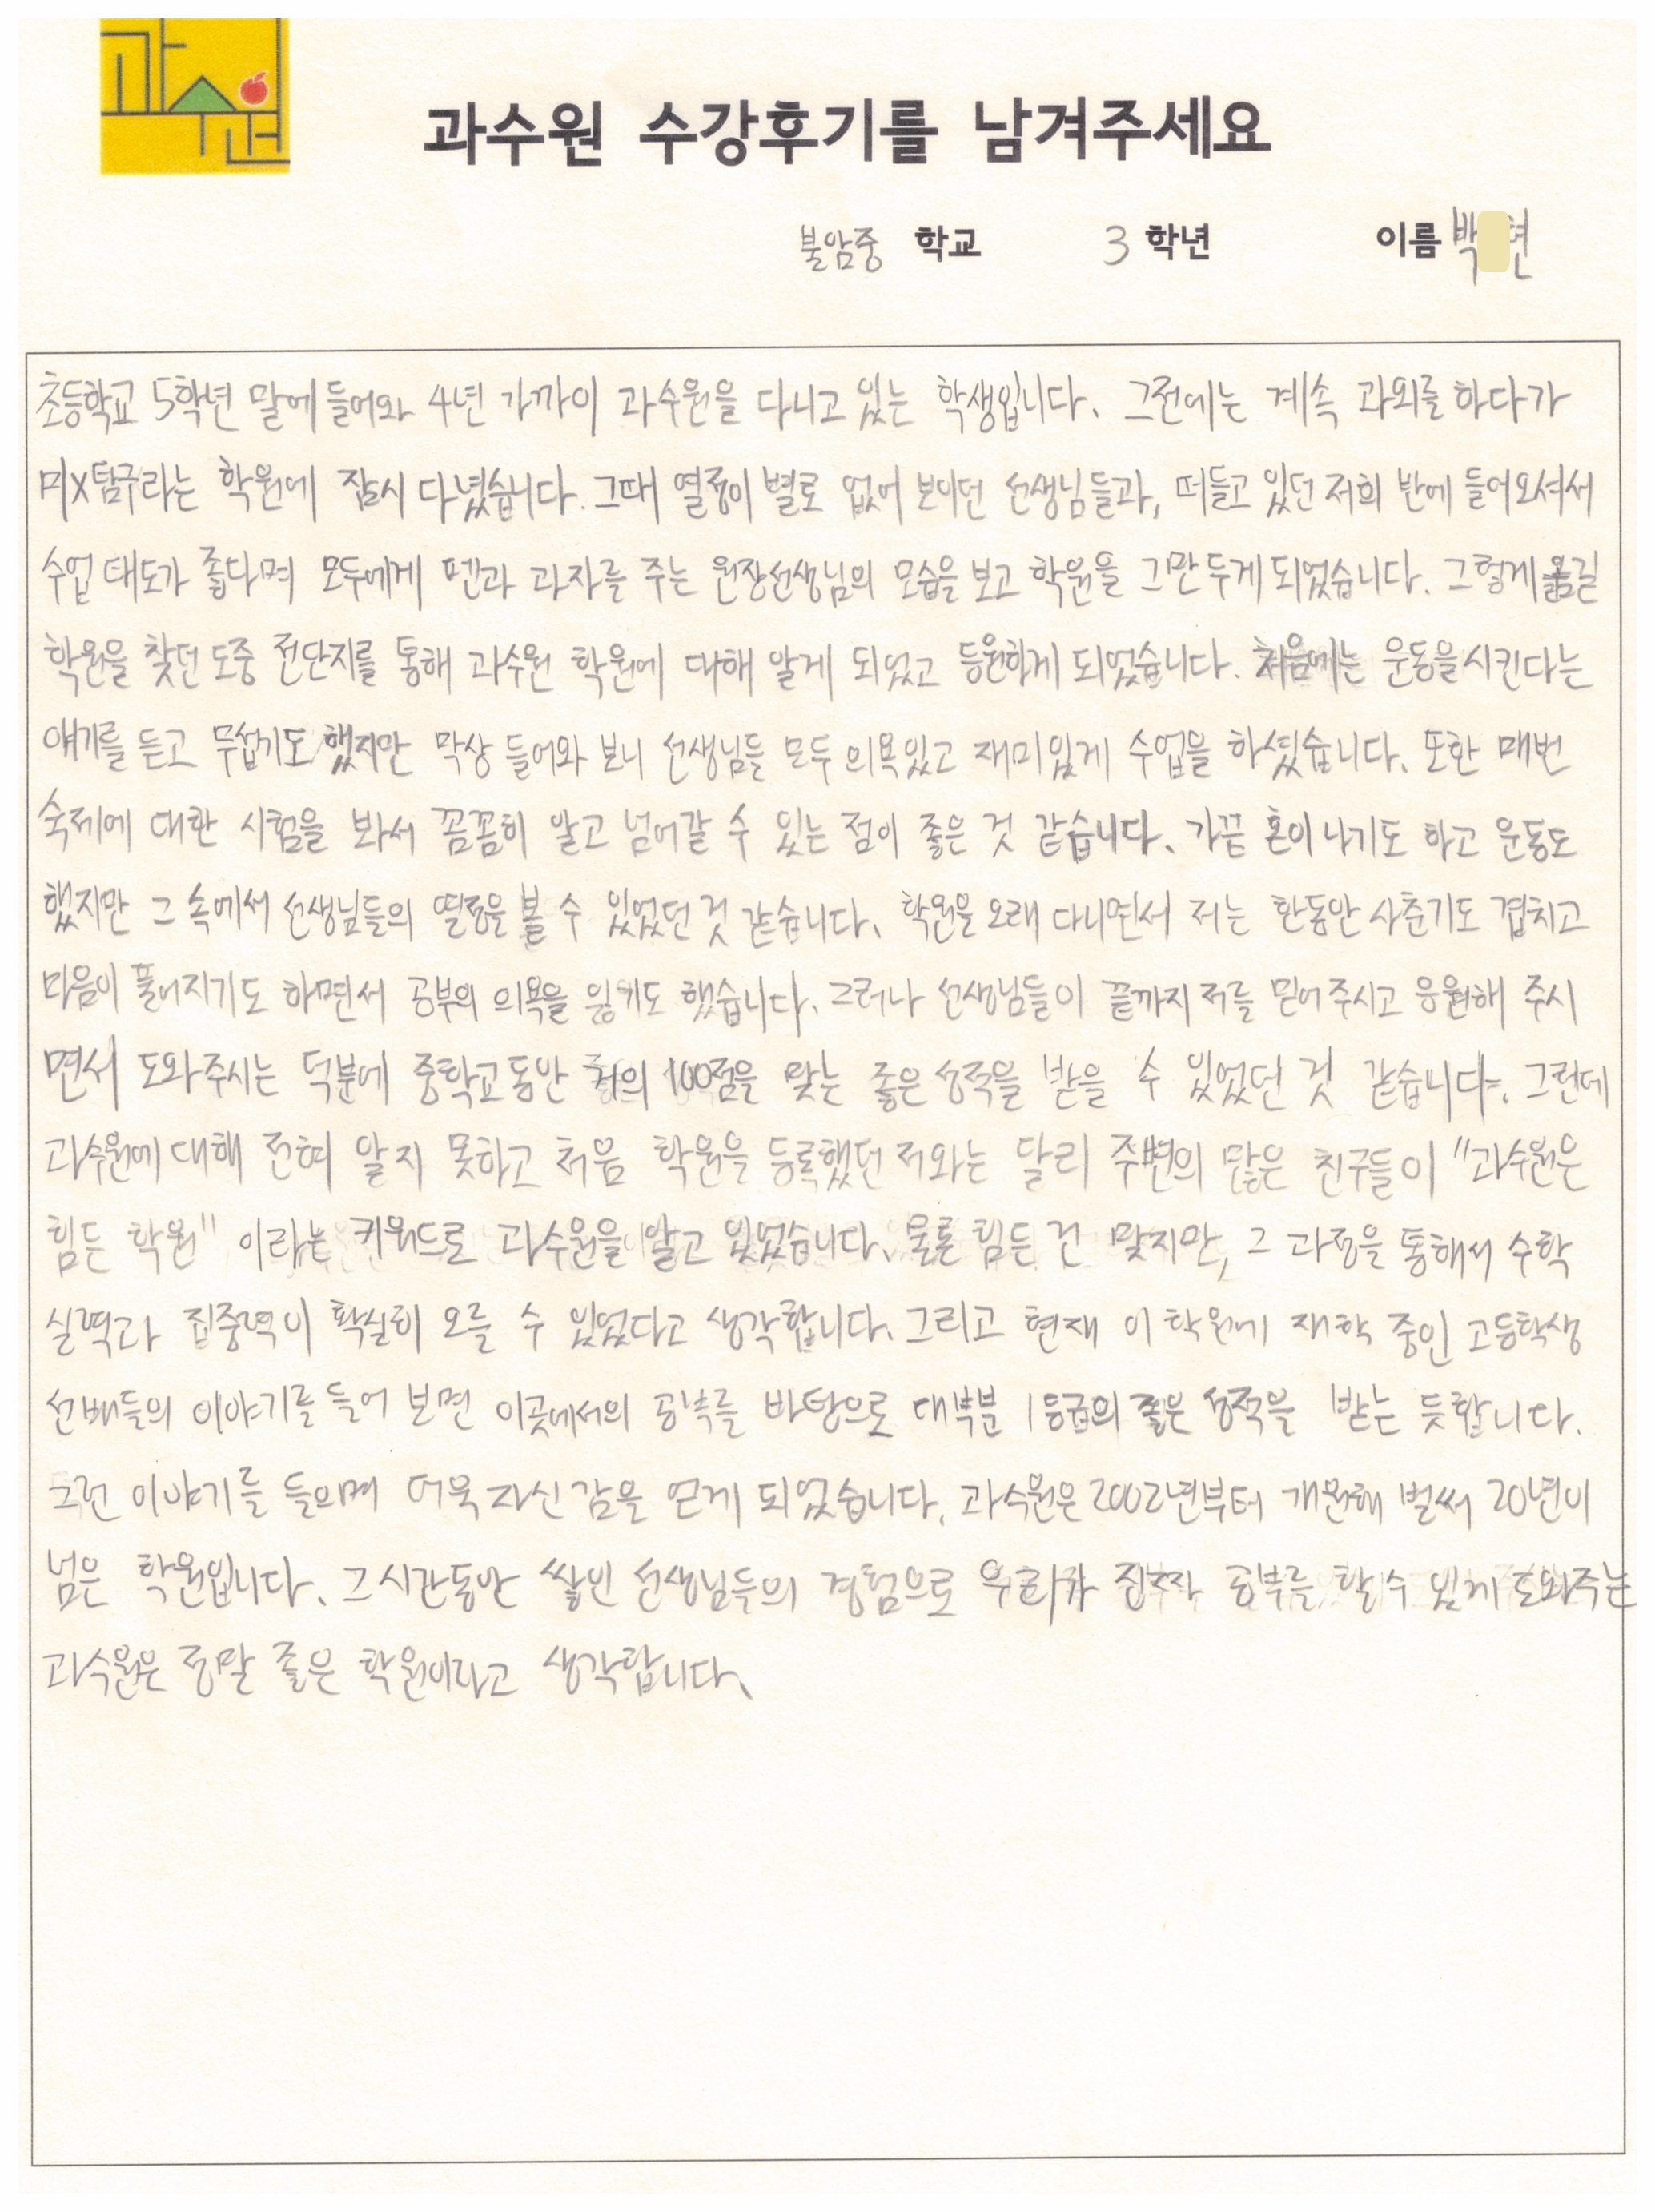 과수원
과수원 수강후기를 남겨주세요
불암중 학교 3 학년 이름 박 현
초등학교 5학년 말에 들어와 4년 가까이 과수원을 다니고 있는 학생입니다. 그전에는 계속 과외를 하다가
미X탐구라는 학원에 잠시 다녔습니다. 그때 열정이 별로 없어 보이던 선생님들과, 떠들고 있던 저희 반에 들어오셔서
수업 태도가 좋다며 모두에게 펜과 과자를 주는 원장선생님의 모습을 보고 학원을 그만두게 되었습니다. 그렇게 옮길
학원을 찾던 도중 전단지를 통해 과수원 학원에 대해 알게 되었고 등원하게 되었습니다. 처음에는 운동을시킨다는
얘기를 듣고 무섭기도 했지만 막상 들어와 보니 선생님들 모두 의욕있고 재미있게 수업을 하셨습니다. 또한 매번
숙제에 대한 시험을 봐서 꼼꼼히 알고 넘어갈 수 있는 점이 좋은 것 같습니다. 가끔 혼이 나기도 하고 운동도
했지만 그 속에서 선생님들의 열정을 볼 수 있었던 것 같습니다. 학원을 오래 다니면서 저는 한동안 사춘기도 겹치고
마음이 풀어지기도 하면서 공부의 의욕을 잃기도 했습니다. 그러나 선생님들이 끝까지 저를 믿어주시고 응원해 주시
면서 도와주시는 덕분에 중학교동안 거의 100점을 맞는 좋은 성적을 받을 수 있었던 것 같습니다. 그런데
과수원에 대해 전혀 알지 못하고 처음 학원을 등록했던 저와는 달리 주변의 많은 친구들이 "과수원은
힘든 학원" 이라는 키워드로 과수원을 알고 있었습니다. 물론 힘든 건 맞지만, 그 과정을 통해서 수학
실력과 집중력이 확실히 오를 수 있었다고 생각합니다. 그리고 현재 이 학원에 재학 중인 고등학생
선배들의 이야기를 들어 보면 이곳에서의 공부를 바탕으로 대부분 1등급의 좋은 성적을 받는 듯합니다.
그런 이야기를 들으며 더욱 자신감을 얻게 되었습니다. 과수원은 2002년부터 개원해 벌써 20년이
넘은 학원입니다. 그 시간동안 쌓인 선생님들의 경험으로 우리가 진짜 공부를 할 수 있게 도와주는
과수원은 정말 좋은 학원이라고 생각합니다.